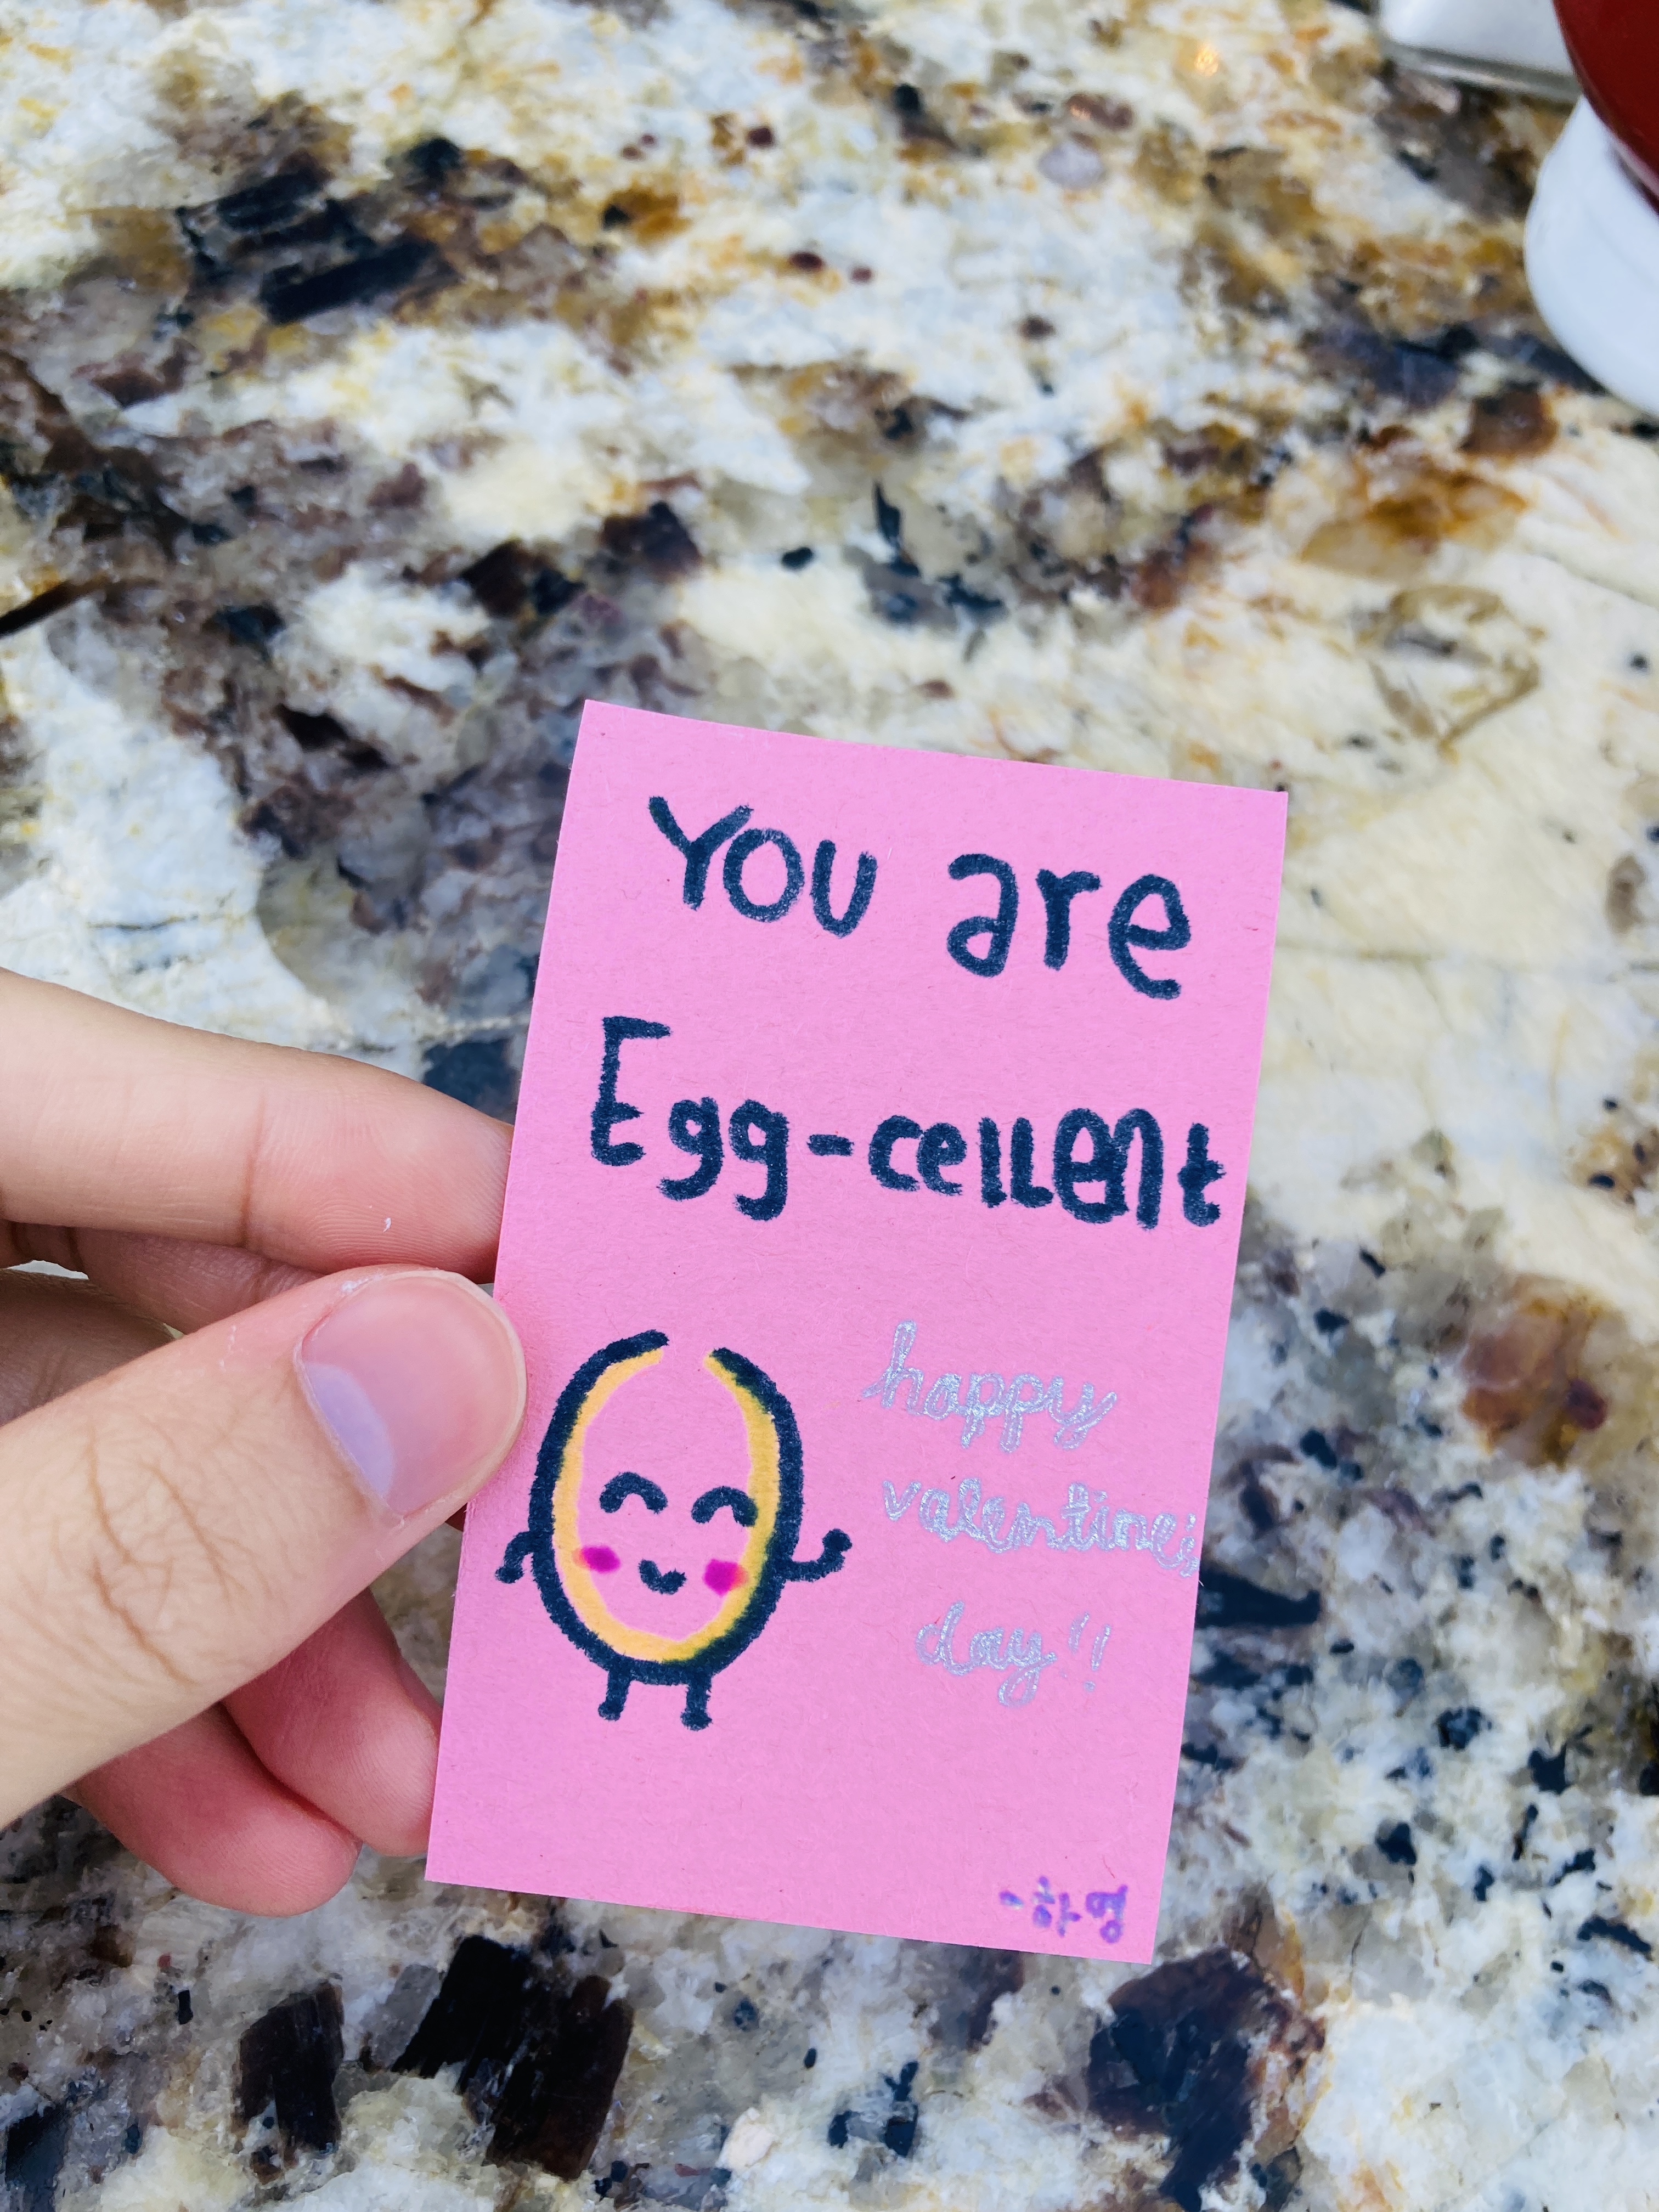 You are
Egg-cellent
happy
valentine's
day!!
-하영